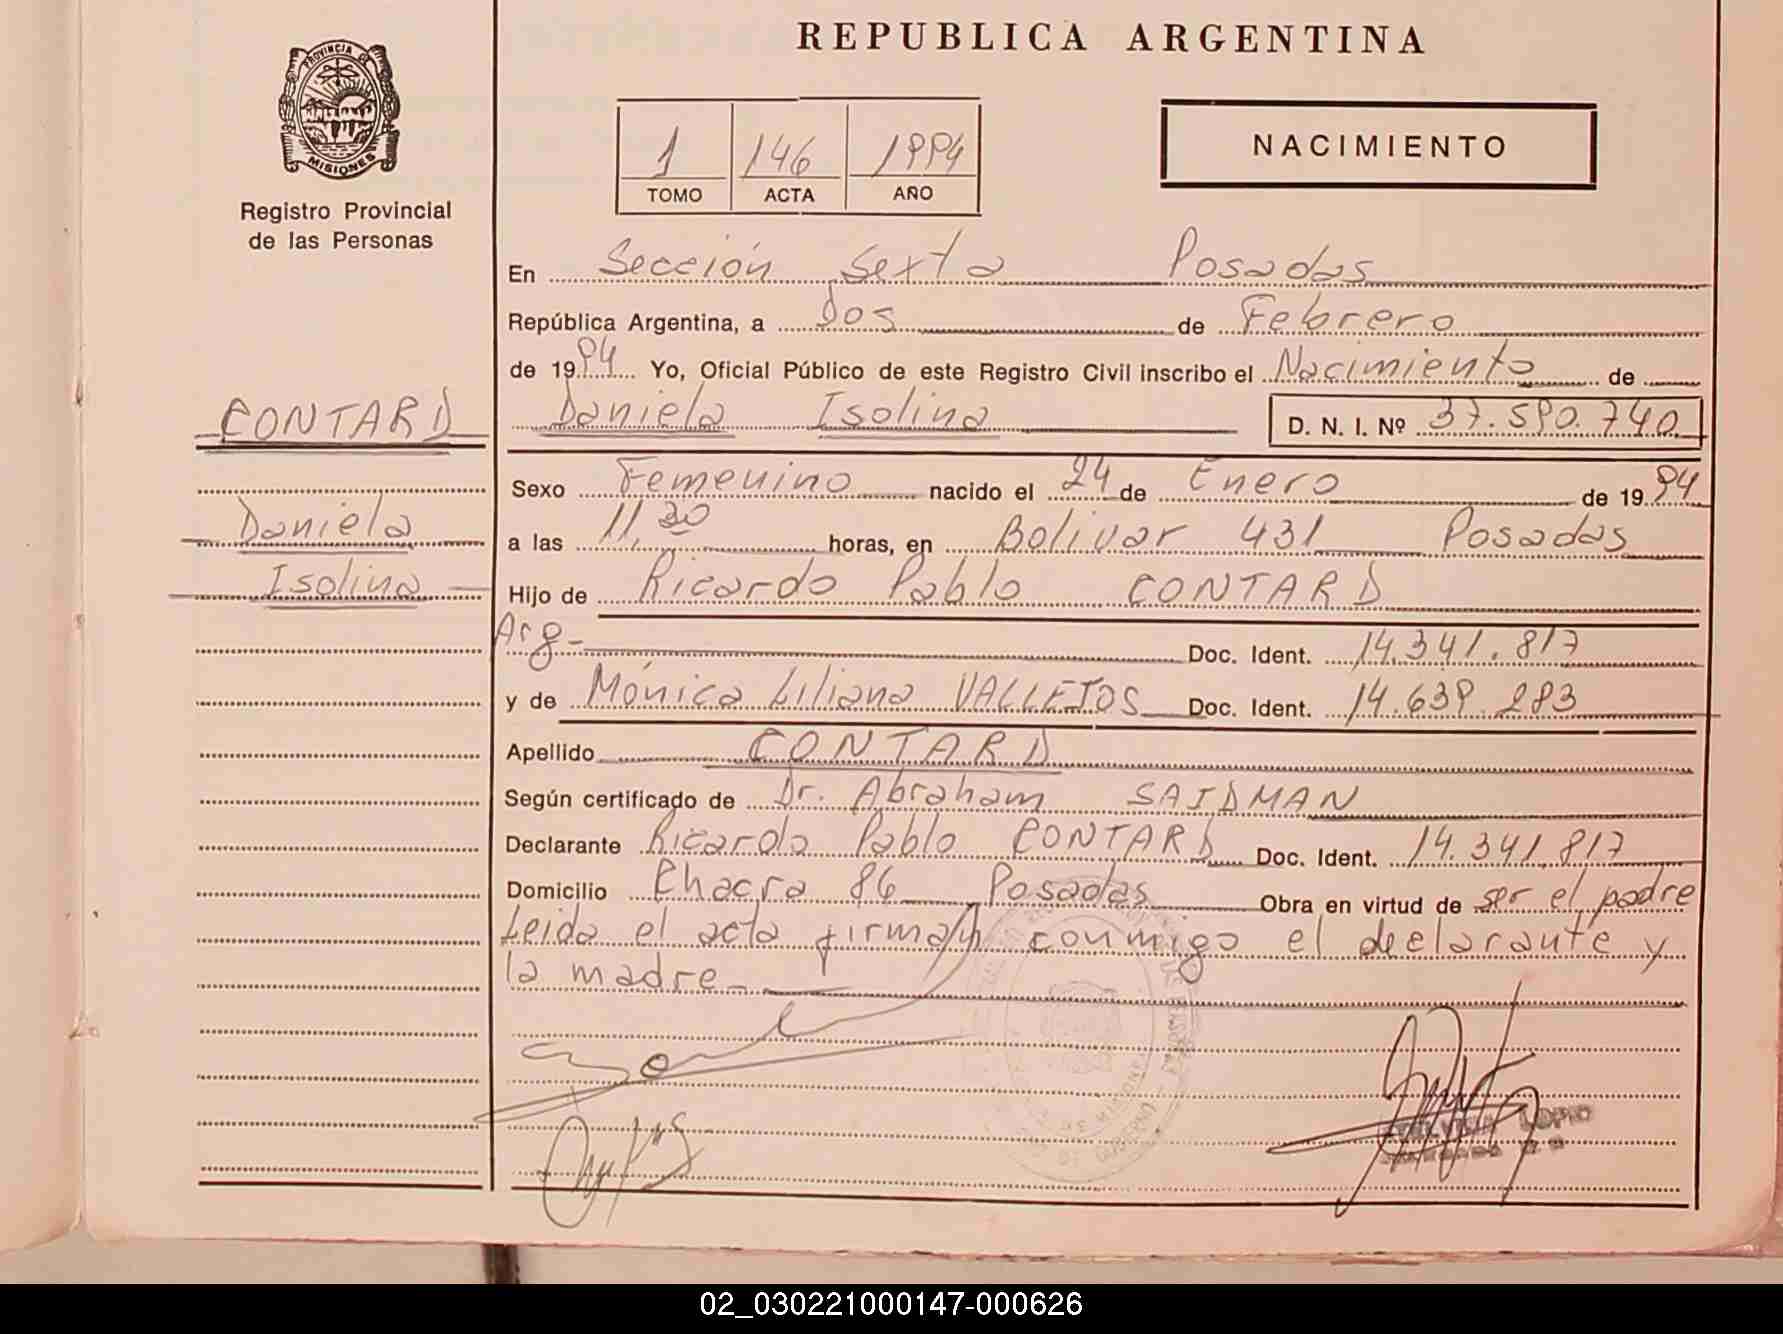 REPUBLICA ARGENTINA
PROVINCIA DE
MISIONES
Registro Provincial
de las Personas
1 146 1994
TOMO ACTA AÑO
NACIMIENTO
En Sección Sexta Posadas
República Argentina, a Dos de Febrero
de 1994 Yo, Oficial Público de este Registro Civil inscribo el Nacimiento de
CONTARD
Daniela Isolina D. N. I. Nº 37.590.740
Sexo Femenino nacido el 24 de Enero de 1994
Daniela
a las 11,30 horas, en Bolivar 431 Posadas
Isolina
Hijo de Ricardo Pablo CONTARD
Arg- Doc. Ident. 14.341.817
y de Mónica Liliana VALLEJOS Doc. Ident. 14.639.283
Apellido CONTARD
Según certificado de Dr. Abraham SAIDMAN
Declarante Ricardo Pablo CONTARD Doc. Ident. 14.341.817
Domicilio Chacra 86 Posadas Obra en virtud de ser el padre
Leida el acta firma/n conmigo el declarante y
la madre-
02_030221000147-000626